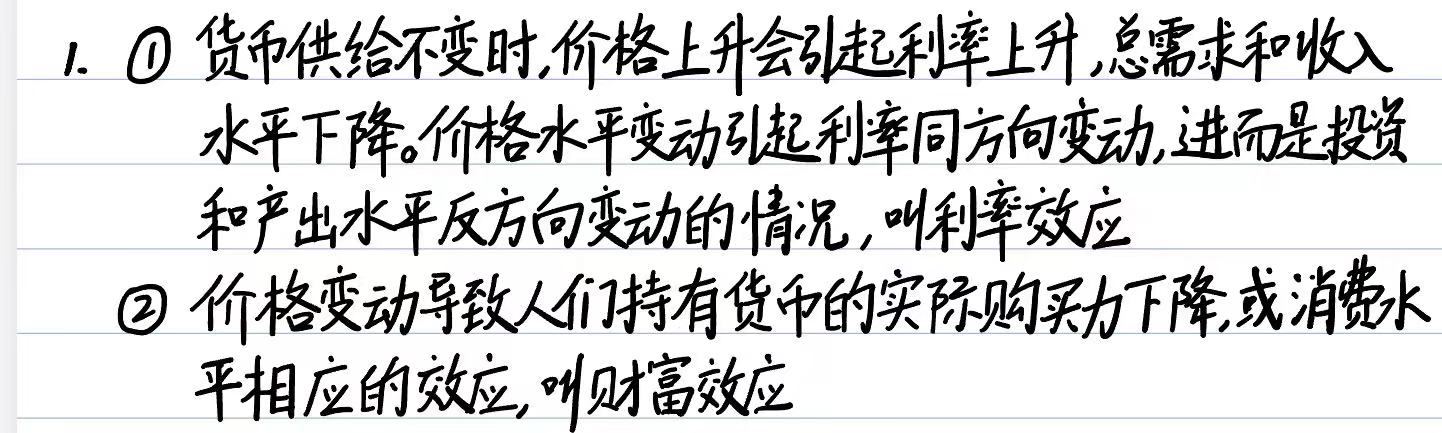 1. ① 货币供给不变时,价格上升会引起利率上升,总需求和收入
水平下降。价格水平变动引起利率同方向变动,进而是投资
和产出水平反方向变动的情况,叫利率效应
② 价格变动导致人们持有货币的实际购买力下降,或消费水
平相应的效应,叫财富效应